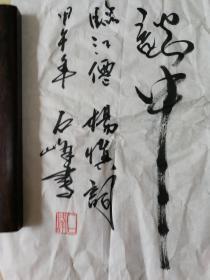 談中
臨江僊 楊慎詞
甲午年 石峰書